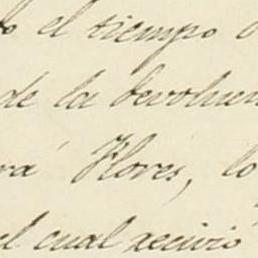 o el tiempo
de la devoluen
rá Flores, lo
el cual recivió